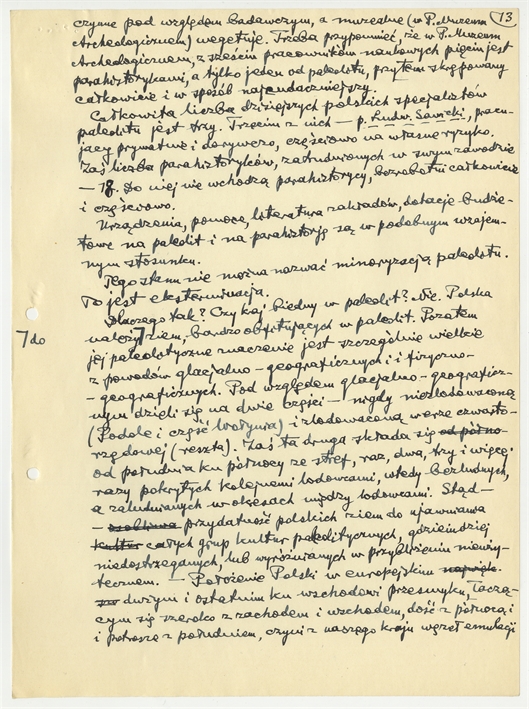 13
czynne pod względem badawczym, a muzealne (w P. Muzeum
Archeologicznem) wegetuje. Trzeba przypomnieć, że w P. Muzeum
Archeologicznem, z sześciu pracowników naukowych pięciu jest
parahistorykami, a tylko jeden od paleolitu, przytem skrępowany
całkowicie i w sposób najcudaczniejszy.
Całkowita liczba dzisiejszych polskich specjalistów
paleolitu jest trzy. Trzecim z nich — p. Ludw. Sawicki, pracu-
jący prywatnie i dorywczo, częściowo na własne ryzyko.
Zaś liczba parahistoryków, zatrudnionych w swym zawodzie
— 18. Do niej nie wchodzą parahistorycy, bezrobotni całkowicie
i częściowo.
Urządzenia, pomoce, literatura zakładów, dotacje budże-
towe na paleolit i na parahistorję są w podobnym wzajem-
nym stosunku.
Tego stanu nie można nazwać minoryzacją paleolitu.
To jest eksterminacja.
Dlaczego tak? Czy kraj biedny w paleolit? Nie. Polska
należy ziem, bardzo obfitujących w paleolit. Pozatem
do
jej paleolityczne znaczenie jest szczególnie wielkie
z powodów glacjalno-geograficznych i i fizyczno-
-geograficznych. Pod względem glacjalno-geograficz-
nym dzieli się na dwie części — nigdy niezlodowaconą
(Podole i część Wołynia) i zlodowaconą w erze czwarto-
rzędowej (reszta). Zaś ta druga składa się od półno-
od południa ku północy ze stref, raz, dwa, trzy i więcej
razy pokrytych kolejnemi lodowcami, wtedy bezludnych,
a zaludnianych w okresach między lodowcami. Stąd —
— przydatność polskich ziem do ujawniania
kultur całych grup kultur paleolitycznych, gdzieindziej
niedostrzeganych, lub wyróżnianych w przybliżeniu niewy-
tecznem. — Położenie Polski w europejskim
dużym i ostatnim ku wschodowi przesmyku, łączą-
cym się szeroko z zachodem i wschodem, dość z północą i
i potrosze z południem, czyni z naszego kraju węzeł emulacji